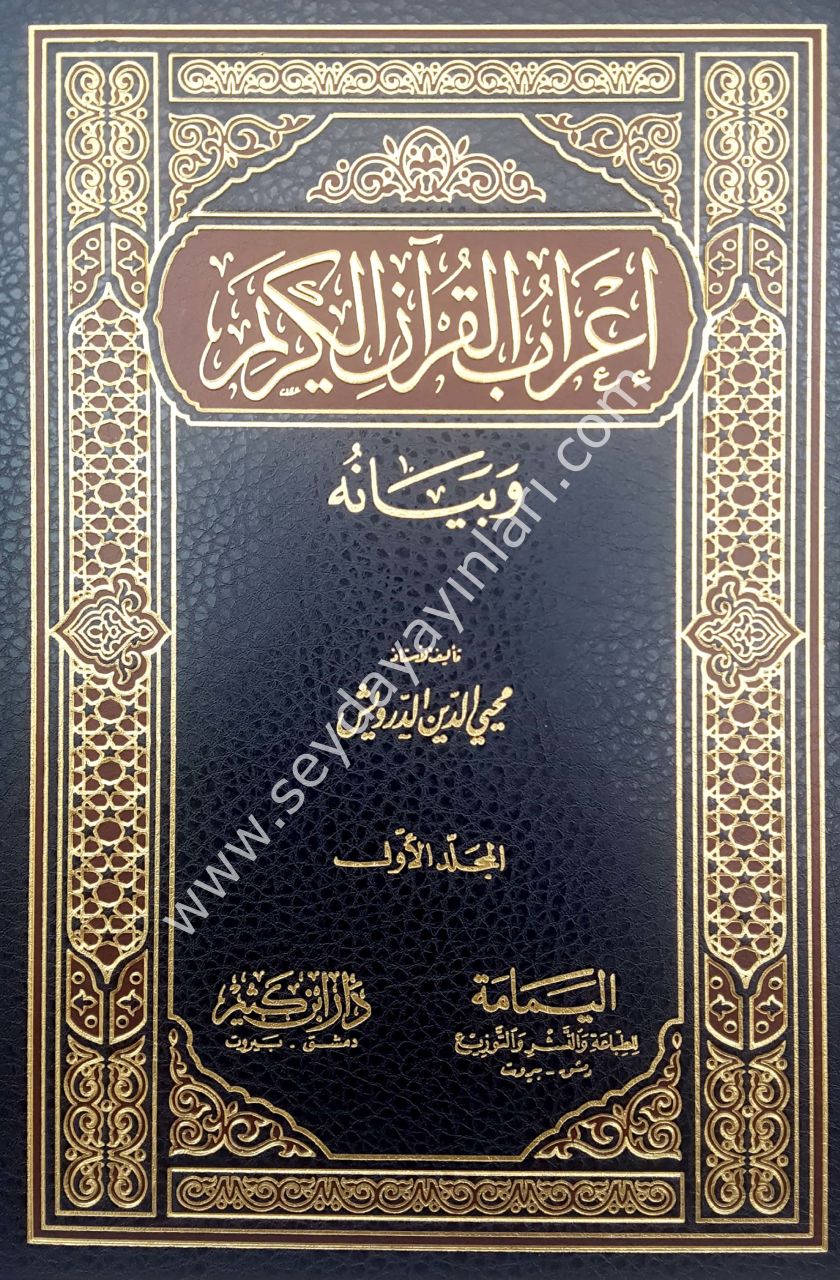 إِعْرَابُ الْقُرْآنِ الْكَرِيمِ
وَبَيَانُهُ
تأليف الأستاذ
محيي الدّين الدّرويش
المجلّد الأوّل
اليَمَامَة
للطِّبَاعَة وَالنَّشْر وَالتَّوْزيع
دمشق - بيروت
دَار ابن كَثير
دمشق - بيروت
www.seydayayinlari.com